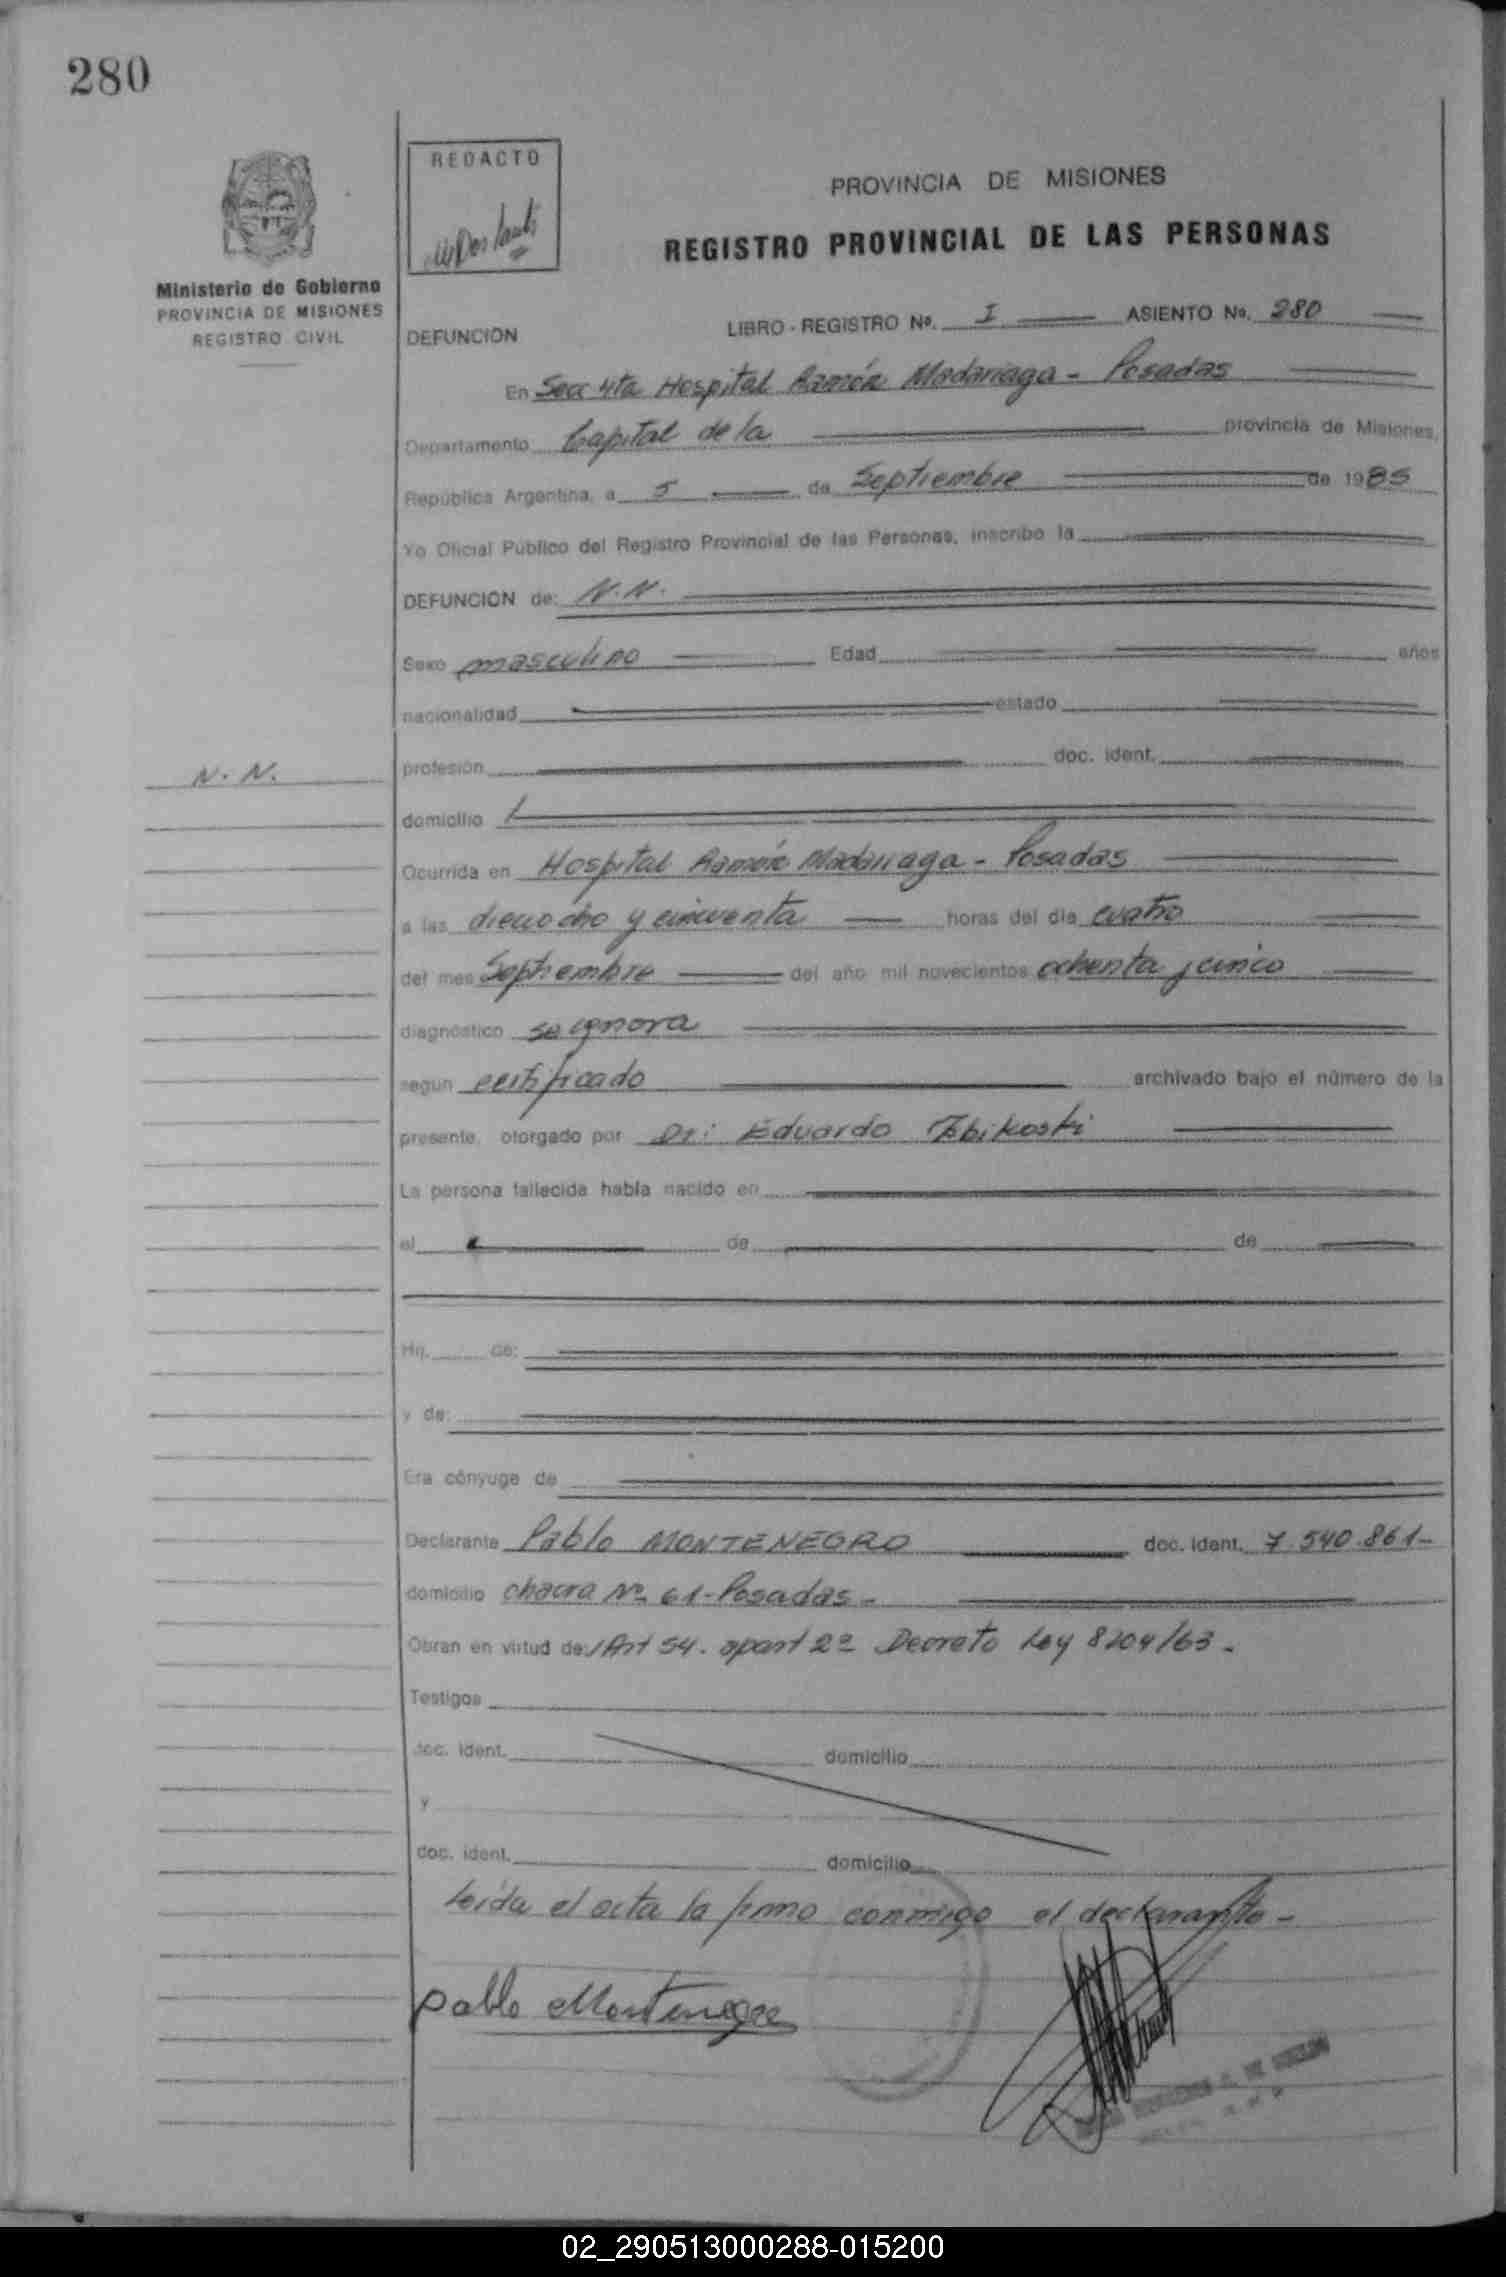 280
REDACTO
Ministerio de Gobierno
PROVINCIA DE MISIONES
REGISTRO CIVIL
PROVINCIA DE MISIONES
REGISTRO PROVINCIAL DE LAS PERSONAS
DEFUNCION
LIBRO - REGISTRO Nº. I ASIENTO No. 280
En Secc 4ta Hospital Ramón Madariaga - Posadas
Departamento Capital de la provincia de Misiones,
República Argentina, a 5 de Septiembre de 1985
Yo Oficial Público del Registro Provincial de las Personas, inscribo la
DEFUNCION de: N.N.
Sexo masculino Edad años
nacionalidad estado
N. N.
profesión doc. ident.
domicilio
Ocurrida en Hospital Ramón Madariaga - Posadas
a las dieciocho y cincuenta horas del día cuatro
del mes Septiembre del año mil novecientos ochenta y cinco
diagnóstico se ignora
según certificado archivado bajo el número de la
presente, otorgado por Dr: Eduardo Zbikoski
La persona fallecida había nacido en
el de de
Hij. de:
y de:
Era cónyuge de
Declarante Pablo MONTENEGRO doc. ident. 7.540.861-
domicilio chacra Nº 61 - Posadas -
Obran en virtud de: Art 54. apart 2º Decreto Ley 8204/63 -
Testigos
doc. ident. domicilio
y
doc. ident. domicilio
Leída el acta la firma conmigo el declarante -
Pablo Montenegro
02_290513000288-015200